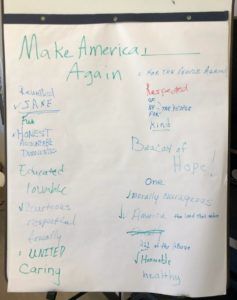 Make America ____
Again
Reunited
✓ SANE
Fun
✓ HONEST
Educated
Lovable
✓ Courteous
respectful
friendly
✓ UNITED
Caring
FOR THE PEOPLE AGAIN
Respected
OF
BY - THE PEOPLE
FOR
Kind
Beacon of
Hope
One
✓ morally courageous
America the land that
All of the Above
✓ Honorable
healthy